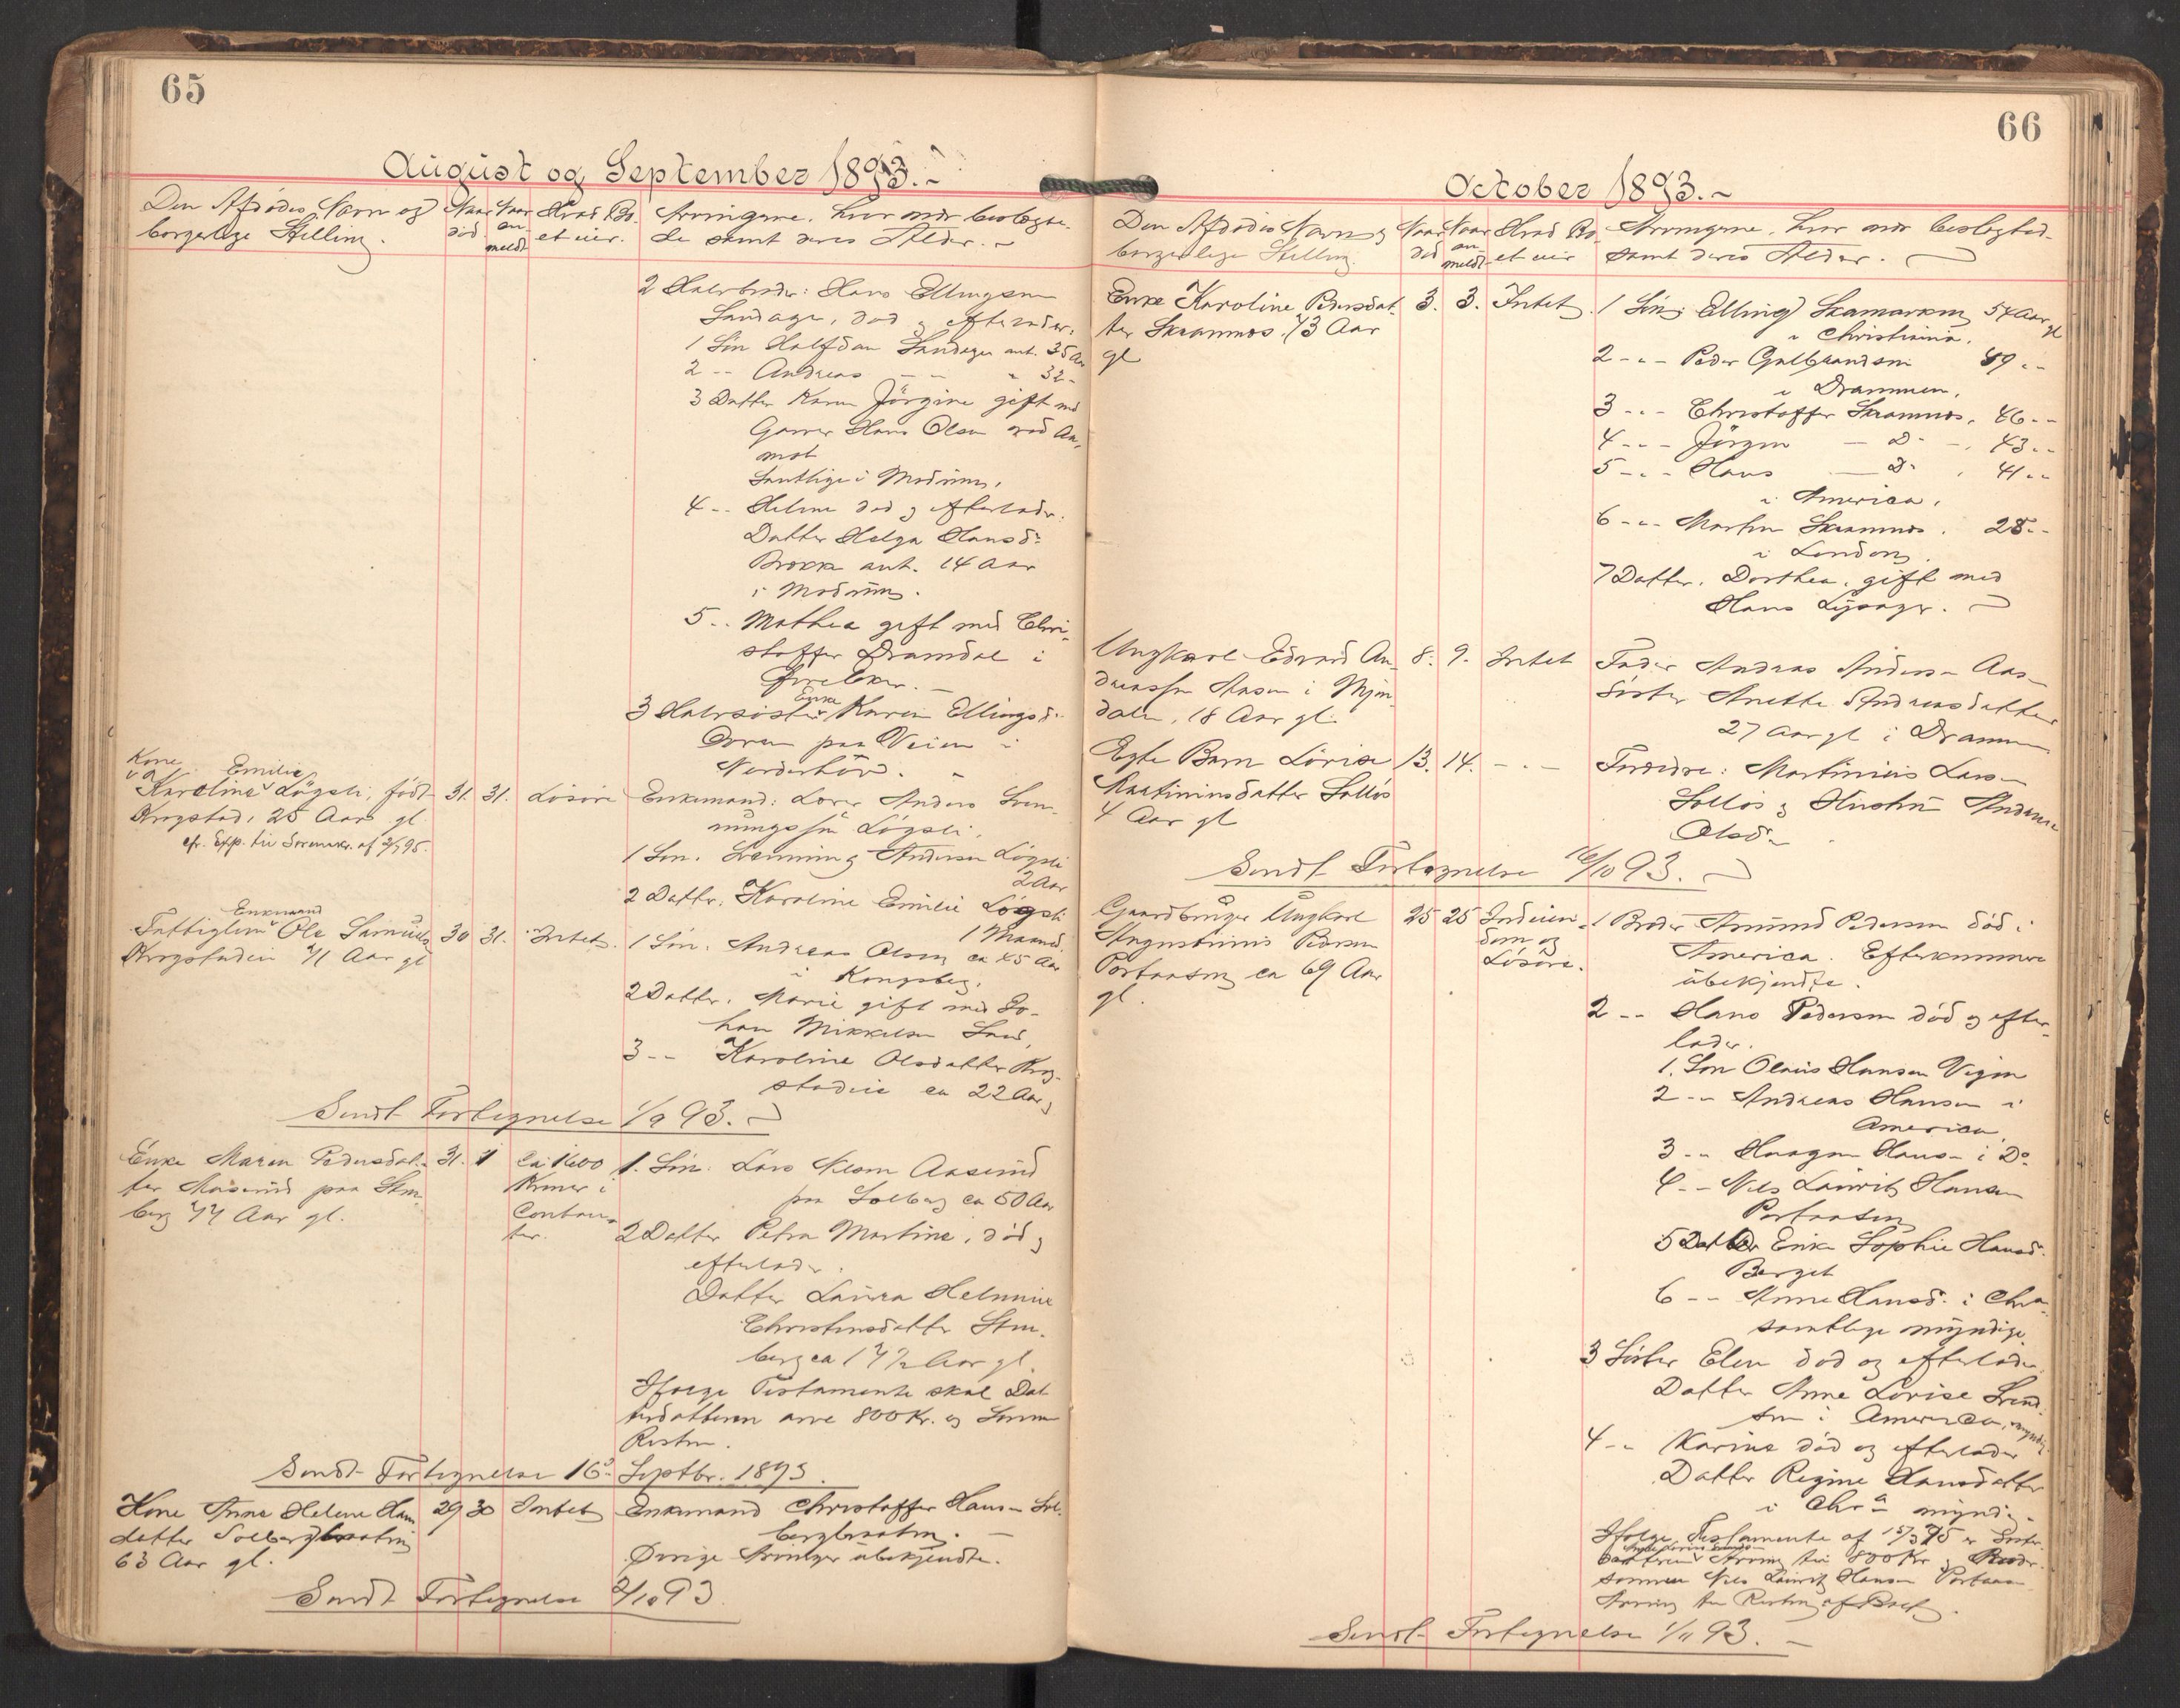 65
August og September 1893.-
Den Afdødes Navn og
borgerlige Stilling.
Naar
død
Naar
an-
meldt
Hvad Bo-
et eier.
Arvingerne, hvor nær beslægte-
de samt deres Alder.
2 Halvbroder: Hans Ellingsen
Sandager, død og efterlader:
1 Søn Halfdan Sandager ant. 35 Aar
2 -- Andreas - - " 32 -
3 Datter Karen Jörgine gift med
Garver Hans Olsen ved Aa-
mot
Samtlige i Modum.
4 -- Helene død og efterlader:
Datter Helga Hansd:
Brokka ant. 14 Aar
i Modum.
5 -- Mathea gift med Chri-
stoffer Dramdal i
Øvre Eker.
3 Halvsøster Enke Karen Ellingsd:
Oren paa Veien i
Norderhov.
Kone
Karoline Emilie Lögsli, født
Krogstad, 25 Aar gl.
cfr. Exp. til Sorenskr. af 2/5 95.
31. 31. Løsøre
Enkemand: Lærer Anders Svен-
ningssøn Lögsli.
1 Søn. Svenning Andersen Lögsli
2 Aar
2 Datter. Karoline Emilie Lögsli
1 Maaned.
Enkemand
Fattiglem Ole Samuels.
Krogstadeie 71 Aar gl
30 31. Intet.
1 Søn. Andreas Olsen ca 45 Aar
i Kongsberg.
2 Datter. Marie gift med Jo-
han Mikkelsen Sand,
3 -- Karoline Olsdatter Krog-
stadeie ca 22 Aar
Sendt Fortegnelse 1/9 93.
Enke Maren Pedersdat-
ter Aasmund paa Sten-
berg 77 Aar gl.
31. 1
ca 1600
Kroner i
Contan-
ter.
1. Søn: Lars Nilsen Aasmund
paa Solberg ca 50 Aar
2 Datter Petra Martine, død og
efterlader:
Datter Laura Helmine
Christensdatter Sten-
berg ca 17½ Aar gl.
Ifølge Testamente skal Dat-
terdatteren arve 800 Kr. og Sønnen
Resten.
Sendt Fortegnelse 16d Septbr. 1893.
Kone Anne Helene Hans
datter Solbergbraaten
63 Aar gl.
29 30 Intet
Enkemand Christoffer Hansen Sol-
bergbraaten.
Øvrige Arvinger ubekjendte.
Sendt Fortegnelse 2/10 93
66
October 1893.-
Den Afdødes Navn og
borgerlige Stilling.
Naar
død
Naar
an-
meldt
Hvad Bo-
et eier
Arvingerne, hvor nær beslægted-
samt deres Alder.
Enke Karoline Pedersdat-
ter Skramnes. 73 Aar
gl
3. 3. Intet.
1 Søn: Elling Skamarken 54 Aar gl
i Christiania.
2 -- - Peder Gulbrandsen 49 --
i Drammen.
3 -- - Christoffer Skramnes, 46 --
4 -- - Jörgen - D: - 43 --
5 -- - Hans - D: 41 --
i America.
6 -- - Morten Skramnes. 28 --
i London.
7 Datter. Dorthea, gift med
Hans Lysager.
Ungkarl Edvard An-
dreassen Aasen i Mjøn-
dalen, 18 Aar gl.
8. 9. Intet
Fader Andreas Andersen Aasen
Søster Anette Andreasdatter
27 Aar gl i Drammen.
Egte Barn Lovise
Martiniusdatter Solløs
4 Aar gl
13. 14. - - -
Forældre: Martinius Larsen
Solløs og Hustru Andrine
Olsd.
Sendt Fortegnelse 16/10 93.
Gaardbruger Ungkarl
Augustinius Pedersen
Portaasen ca 69 Aar
gl.
25 25
Indeien-
dom og
Løsøre.
1 Broder Amund Pedersen død i
America. Efterkommere
ubekjendte.
2 -- Hans Pedersen død og efter-
lader.
1. Søn Olaus Hansen Vegen
2 -- Andreas Hansen i
America
3 -- Haagen Hansen i Do
4 -- Nils Lauritz Hansen
Portaasen
5 Datter Enke Sophie Hansd:
Berget
6 -- Anne Hansd: i Chra
samtlige myndige.
3 Søster Elen død og efterlader
Datter Anne Lovise Svend-
sen i America, myndig
4 -- Karine død og efterlader
Datter Regine Hansdatter
i Chra myndig.
Ifølge Testamente af 15/3 75 er Søster-
datteren Arving til 800 Kr og Broder-
sønnen Nils Lauritz Hansen Portaasen
Arving til Resten af Boet.
Sendt Fortegnelse 1/11 93.